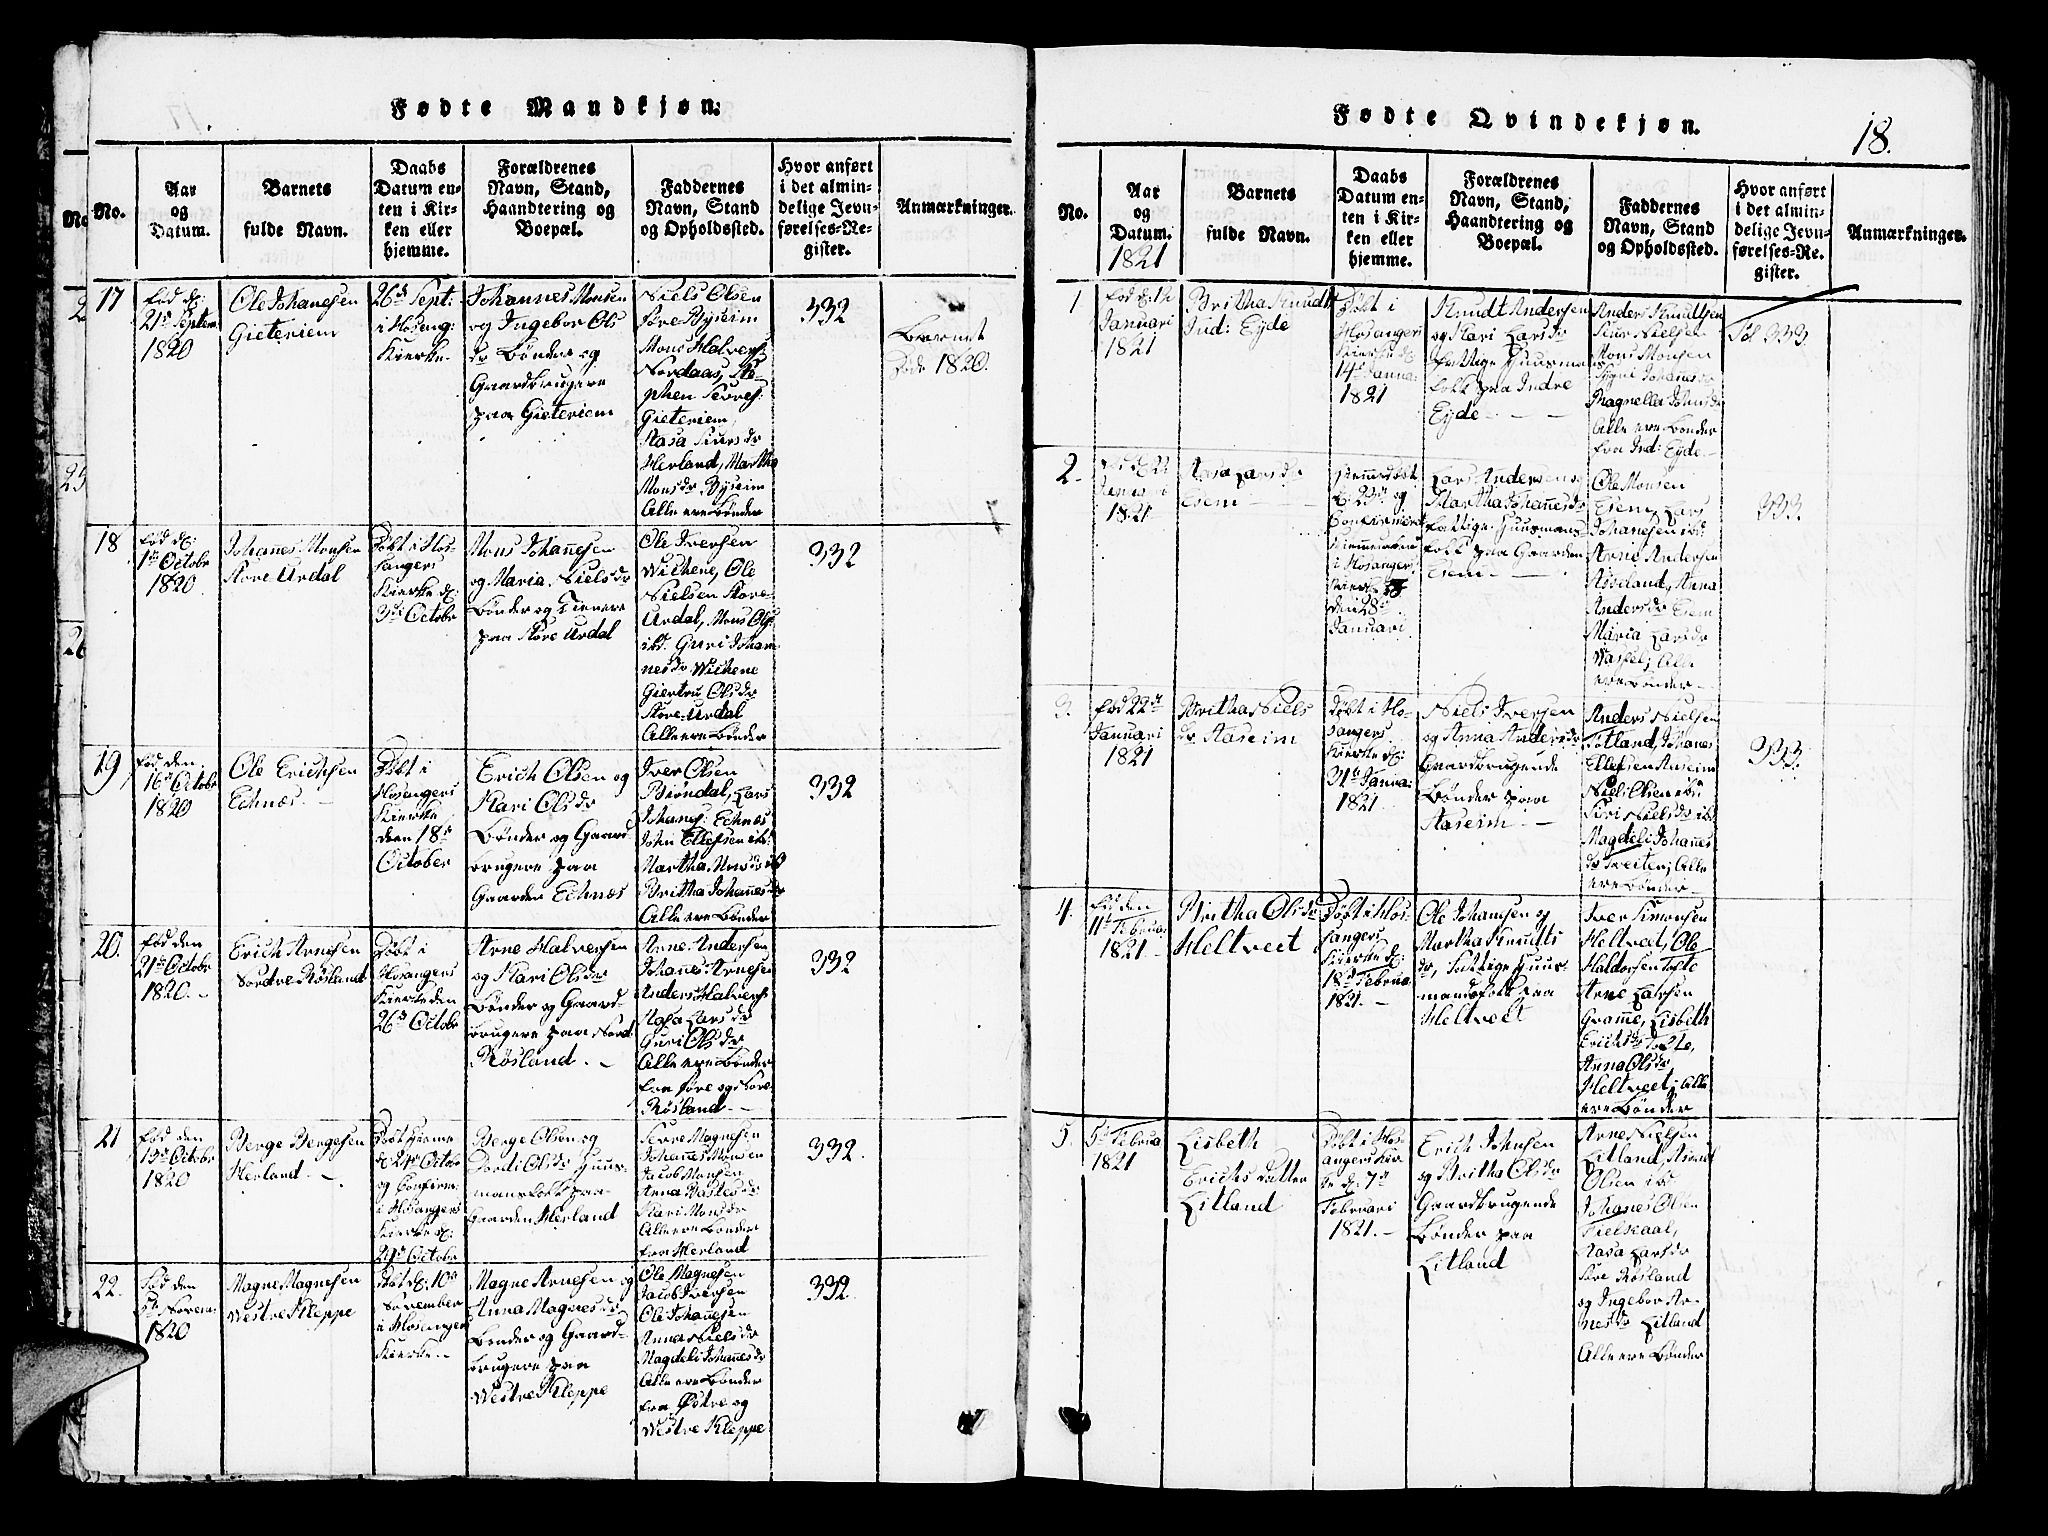 Fødte Mandkjøn:
No.
Aar
og
Datum.
Barnets
fulde Navn.
Daabs
Datum en-
ten i Kir-
ken eller
hjemme.
Forældrenes
Navn, Stand,
Haandtering og
Boepæl.
Faddernes
Navn, Stand
og Opholdssted.
Hvor anført
i det almin-
delige Jevn-
førelses-Re-
gister.
Anmærkninger.
17
fød d:
21de Septem:
1820
Ole Johanesen
Gieteriem
26de Sept:
i Hosang:
Kierke
Johannes Monsen
og Ingebor Ols
dr Bønder og
Gaardbrugere
paa Gieteriem
Niels Olsen
Søre Byseim
Mons Halvers
Nordaas, Ste-
phen
Gieteriem,
Aasa Siursdr
Herland, Martha
Monsdr Byseim
Alle ere Bønder
332
Barnet
døde 1820.
18
fød d:
1ste Octobr
1820
Johanes Monsen
Store Urdal
Døbt i Ho-
sangers
Kierke d:
3de Octobr
Mons Johanesen
og Maria Nielsdr
Bønder og Tienere
paa Store Urdal
Ole Iversen
Wichene, Ole
Nielsen Store
Urdal, Mons Ols:
ibd. Guri Johan-
nesdr Wichene
Giertru Olsdr
Store Urdal
Alle ere Bønder
332
19
fød den
16de Octobr
1820
Ole Erichsen
Echnæs.
Døbt i
Hosangers
Kierke
den 18de
October
Erich Olsen og
Kari Olsdr
Bønder og Gaard-
brugere paa
Gaarden Echnæs
Iver Olsen
Birndal, Lars
Johans: Echnæs
John Ellefsen ibd:
Martha Monsdr ibd
Britha Johannesdr
Alle ere Bønder
332
20.
fød den
21de Octobr
1820.
Erich Arnesen
Nordre Røsland
Døbt i
Hosangers
Kierke den
26de Octobr
Arne Halversen
og Kari Olsdr
Bønder og Gaard-
brugere paa Nord
Røsland.
Arne Andersen
Johanes Arnesen
Anders Halvers
Aasa Larsdr
Guri Olsdr
Alle ere Bønder
fra Søre og Nore
Røsland
332
21
fød den
19de Octobr
1820
Berge Bergesen
Herland.
Døbt hieme
d: 24de Octobr
og Confirm:
i Hosangers
Kierke d:
29de Octobr
Berge Olsen og
Dordi Olsdr Huus-
mansfolk paa
Gaarden Herland
Sexe Magnesen
Johannes Monsen
Jacob Monsen
Anna
Kari Monsdr
Alle ere Bønder
fra Herland
332.
22.
Fød den
5te Novem:
1820
Magne Magnesen
Westre Kleppe
Døbt d: 10de
November
i Hosanger
Kierke
Magne Arnesen og
Anna Magnesdr
Bønder og Gaard-
brugere paa
Westre Kleppe
Ole Magnesen
Jacob Iversen
Ole Johanesen
Anna Nielsdr
Magdeli Johannesdr
Alle ere Bønder
fra Østre og
Westre Kleppe
332.
Fødte Qvindekjøn.
18.
No.
Aar
og
Datum.
1821
Barnets
fulde Navn.
Daabs
Datum en-
ten i Kir-
ken eller
hjemme.
Forældrenes
Navn, Stand,
Haandtering og
Boepæl.
Faddernes
Navn, Stand
og Opholdssted.
Hvor anført
i det almin-
delige Jevn-
førelses-Re-
gister.
Anmærkninger.
1
Januari
1821
Britha Knudts
Ind: Eyde
Døbt i
Hosangers
Kierke d:
14de Janua:
1821
Knudt Andersen
og Kari Larsdr
fattige Huusmans
folk paa Indre
Eyde
Anders Knudtsen
Siur Nielsen
Mons Monsen
Johansdr
Magnella Johnsdr
Alle ere Bønder
fra Ind: Eyde
Fol 333.
2.
1821
Aasa Larsdr
Eiem
Hiemedøbt
d: 22de og
Confirmeret
i Hosanger
Kierke
den 28de
Januari
Lars Andersen og
Martha Johanesdr
fattige Huusmans
folk paa Gaarden
Eiem
Ole Monsen
Eiem, Lars
Johanesen ibd:
Arne Andersen
Aaseland, Anna
Andersdr Eiem
Maria Larsdr
Alle
ere Bønder
333.
3.
fød 22de
Januari
1821
Britha Niels
dr Aaseim
Døbt i Ho-
sangers
Kierke d:
31te Janua:
1821.
Niels Iversen
og Anna Andersdr
Gaardbrugende
Bønder paa
Aaseim.
Anders Nielsen
Totland, Johanes
Ellefsen Aaseim
Niels Olsen ibd
Siri Nielsdr ibd
Magdeli Johanes
dr Alle
ere Bønder
333.
4.
fød den
11te Februar
1821.
Britha Olsdr
Heltveet
Døbt i Ho-
sangers
Kierke d:
18de Februa
1821.
Ole Johansen og
Martha Knudts
dr, Fattige Huus-
mandsfolk paa
Heltveet
Iver Simonsen
Heltveet, Ole
Haldorsen Tofte
Arne Larsen
Grame, Lisbeth
Erichsdr Tofte,
Anna Olsdr
Heltveet, Alle
ere Bønder
5.
5te Februa
1821
Lisbeth
Erichs datter
Litland
Døbt i Hos-
angers Kir
ke d: 7de
Februari
1821.
Erich Johnsen
og Britha Olsdr
Gaardbrugende
Bønder paa
Litland
Arne Nielsen
Litland,
Olsen ibd
Johanes Olsen
Tielskaal,
Aasa Larsdr
Søre Røsland
og Ingebor Ar-
nesdr Litland
Alle ere Bønder